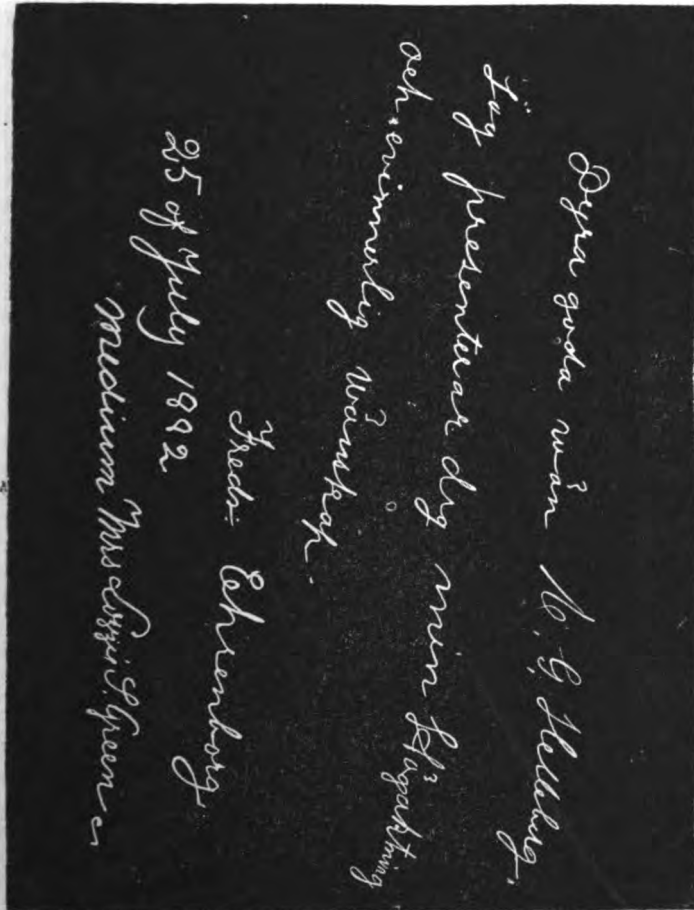 Dyra goda wän C. G. Helleberg,
Jag presenterar dig min Högaktning
och evinnerlig wänskap.
Fredr: Ehrenborg
25 of July 1892
Medium Mrs Lizzi S. Green